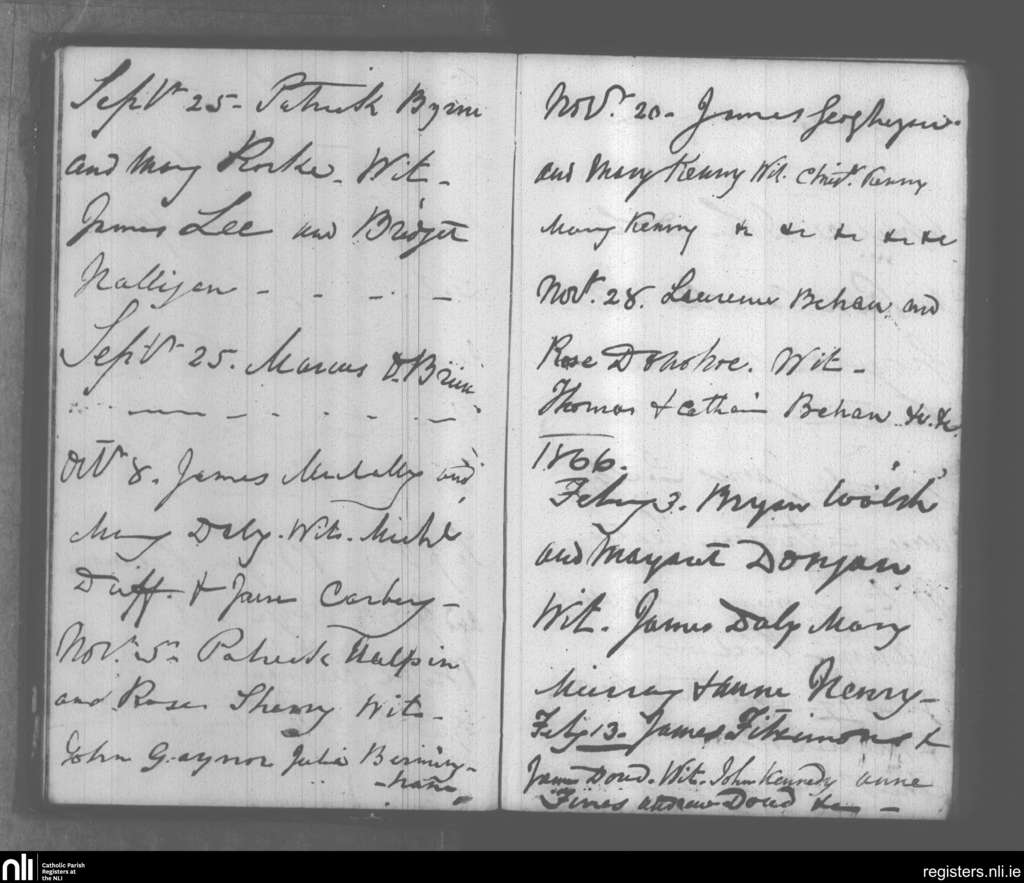 Septr 25 - Patrick Byrne
and Mary Rorke - Wit -
James Lee and Bridget
Nalligan - - - -
Septr 25. Marcus O'Brien
Octr 8. James McNally and
Mary Daly. Wits. Michl
Duff & Jane Carbery -
Novr 5. Patrick Halpin
and Rose Sherry Wits -
John Gaynor Julia Berming-
-hame
Novr. 20 - James Geoghegan -
and Mary Kenny Wit. Christr. Kenny
Mary Kenny &c &c &c &c &c
Novr. 28. Laurence Behan and
Rose Donohoe. Wit -
Thomas & Cathain Behan &c. &c.
1866.
Feby 3. Bryan Walsh
and Margaret Dongan
Wit. James Daly Mary
Murray & anne Henry -
Feby 13 - James Fitzsimons &
Doud. Wit. John Kennedy anne
Fines andrew Doud &c -
nli
Catholic Parish
Registers at
the NLI
registers.nli.ie